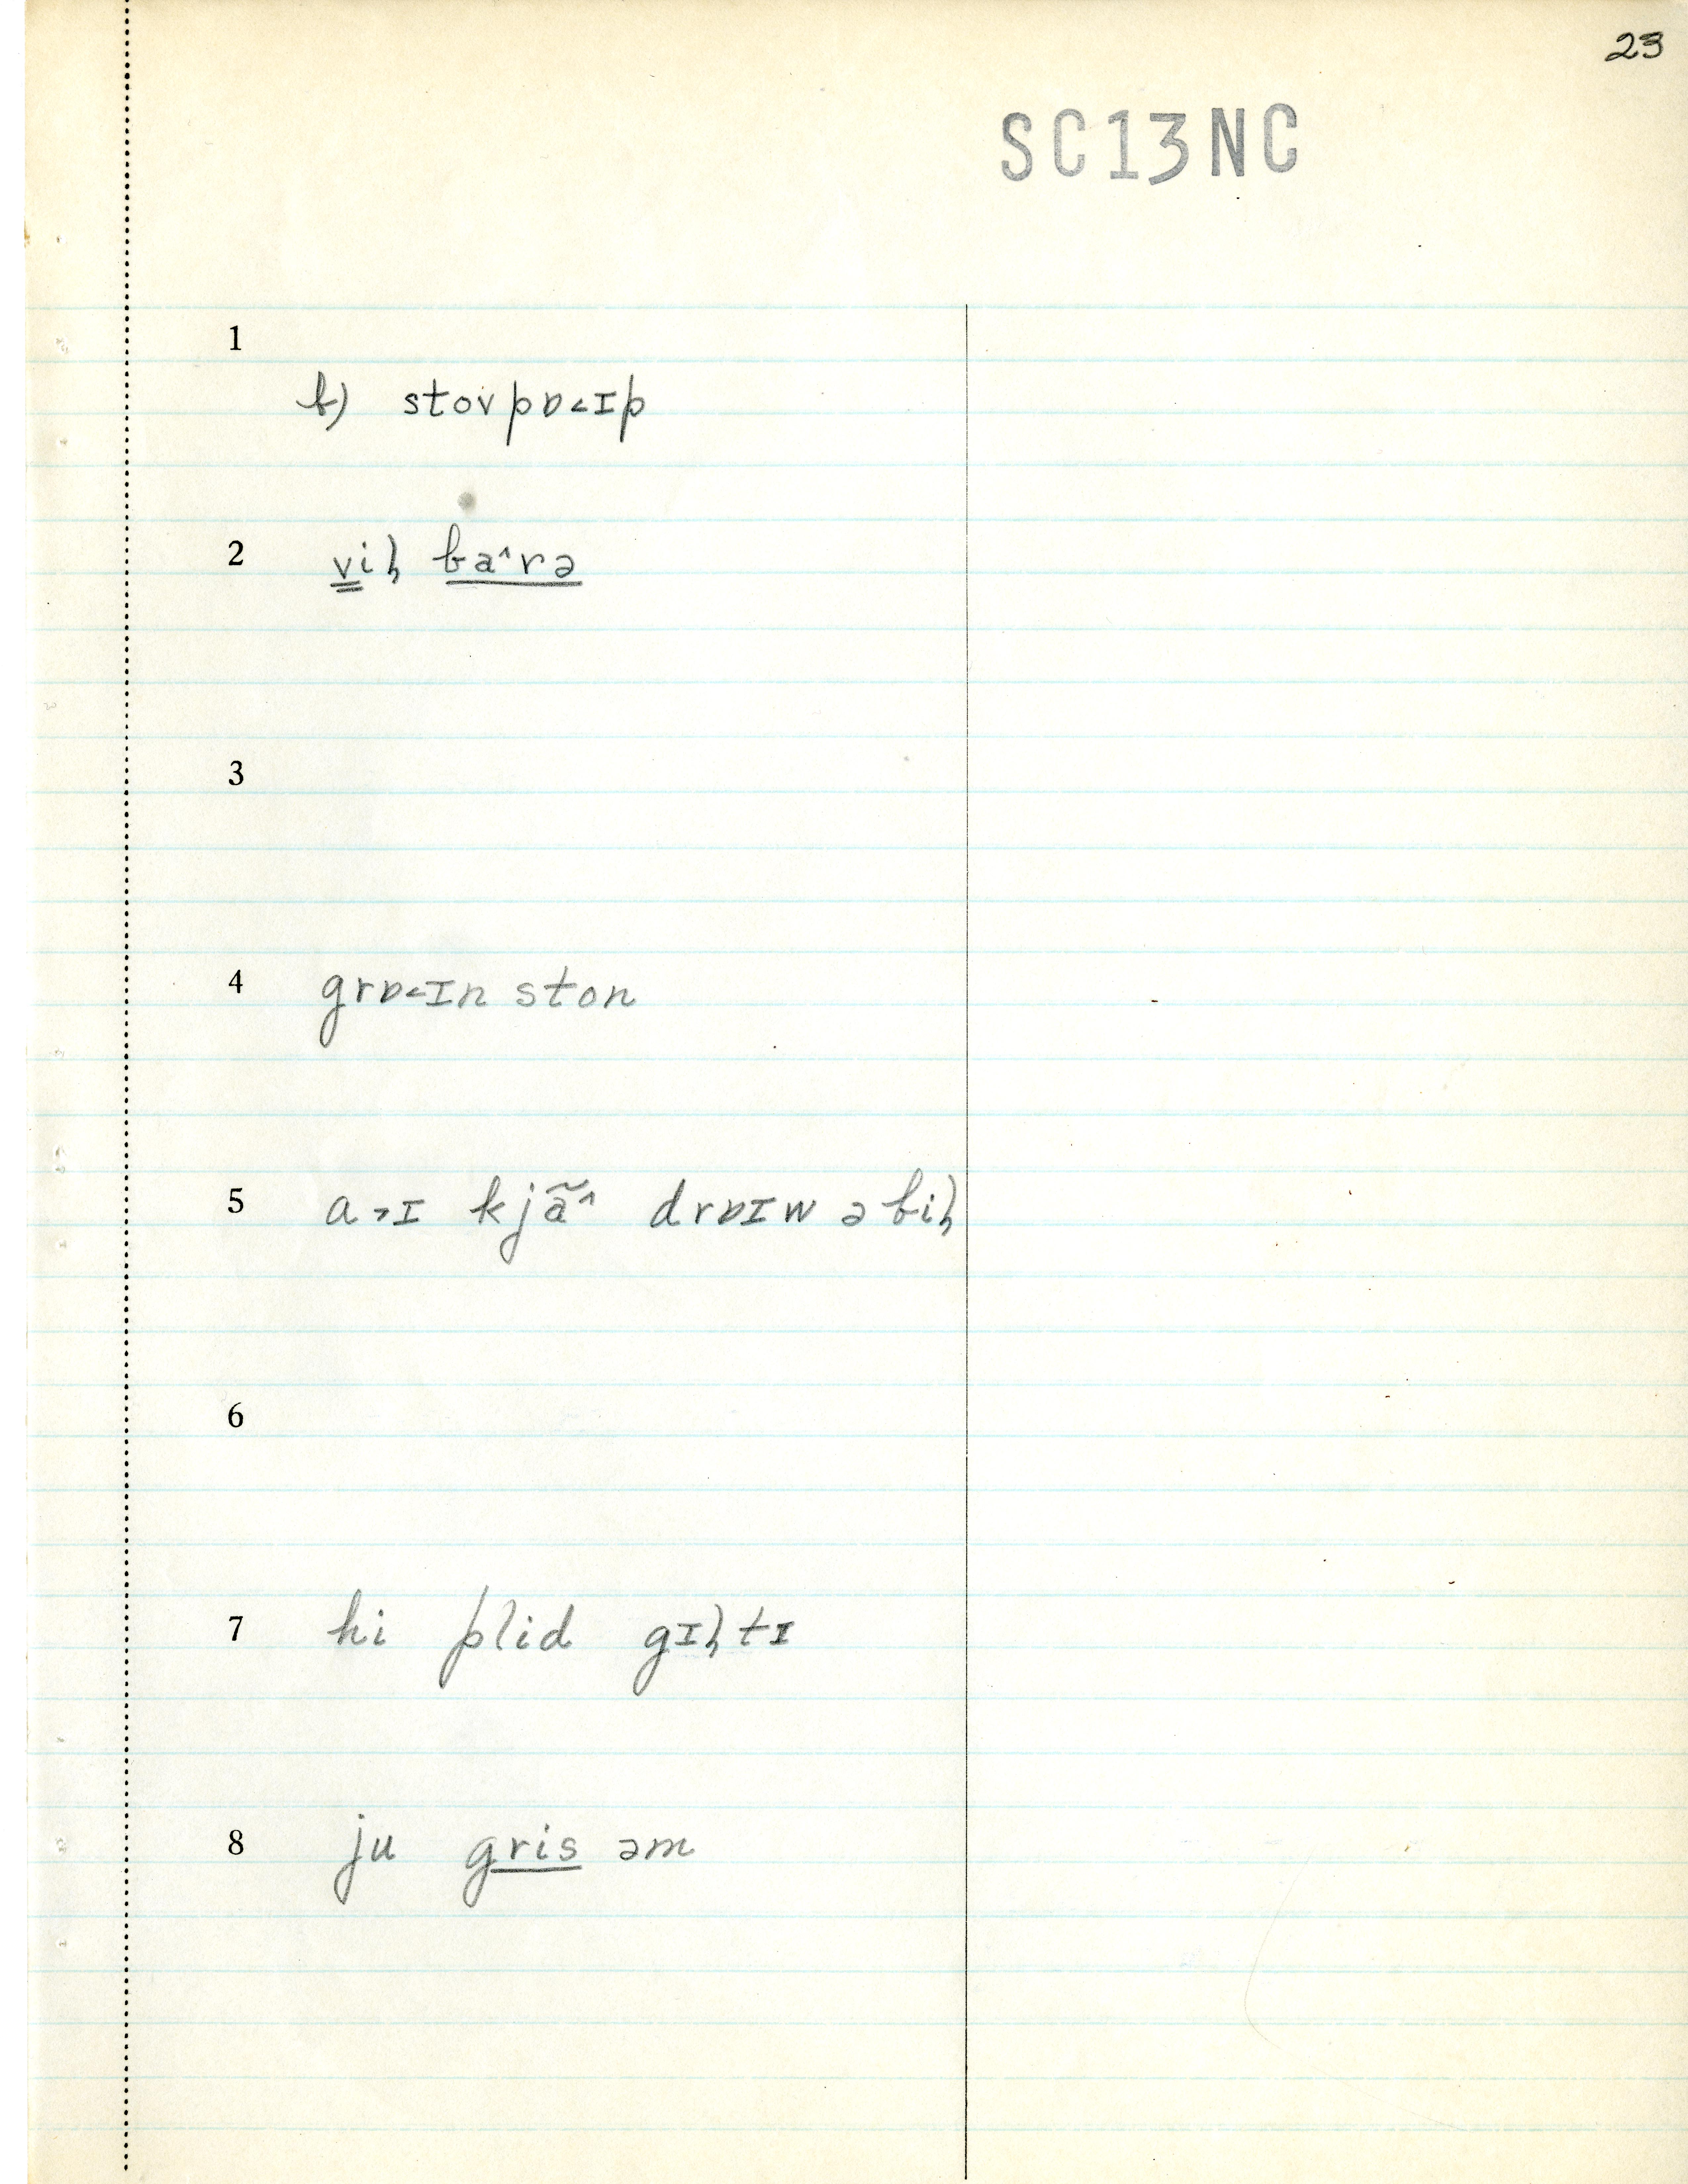 23
SC13NC
1
b) stovpɒ˂ɪp
2 vil̩ ba^rə
3
4 grɒ˂ɪn ston
5 a˃ɪ kjã^ drɒɪw ə bil̩
6
7 hi plid gɪl̩tɪ
8 ju gris əm